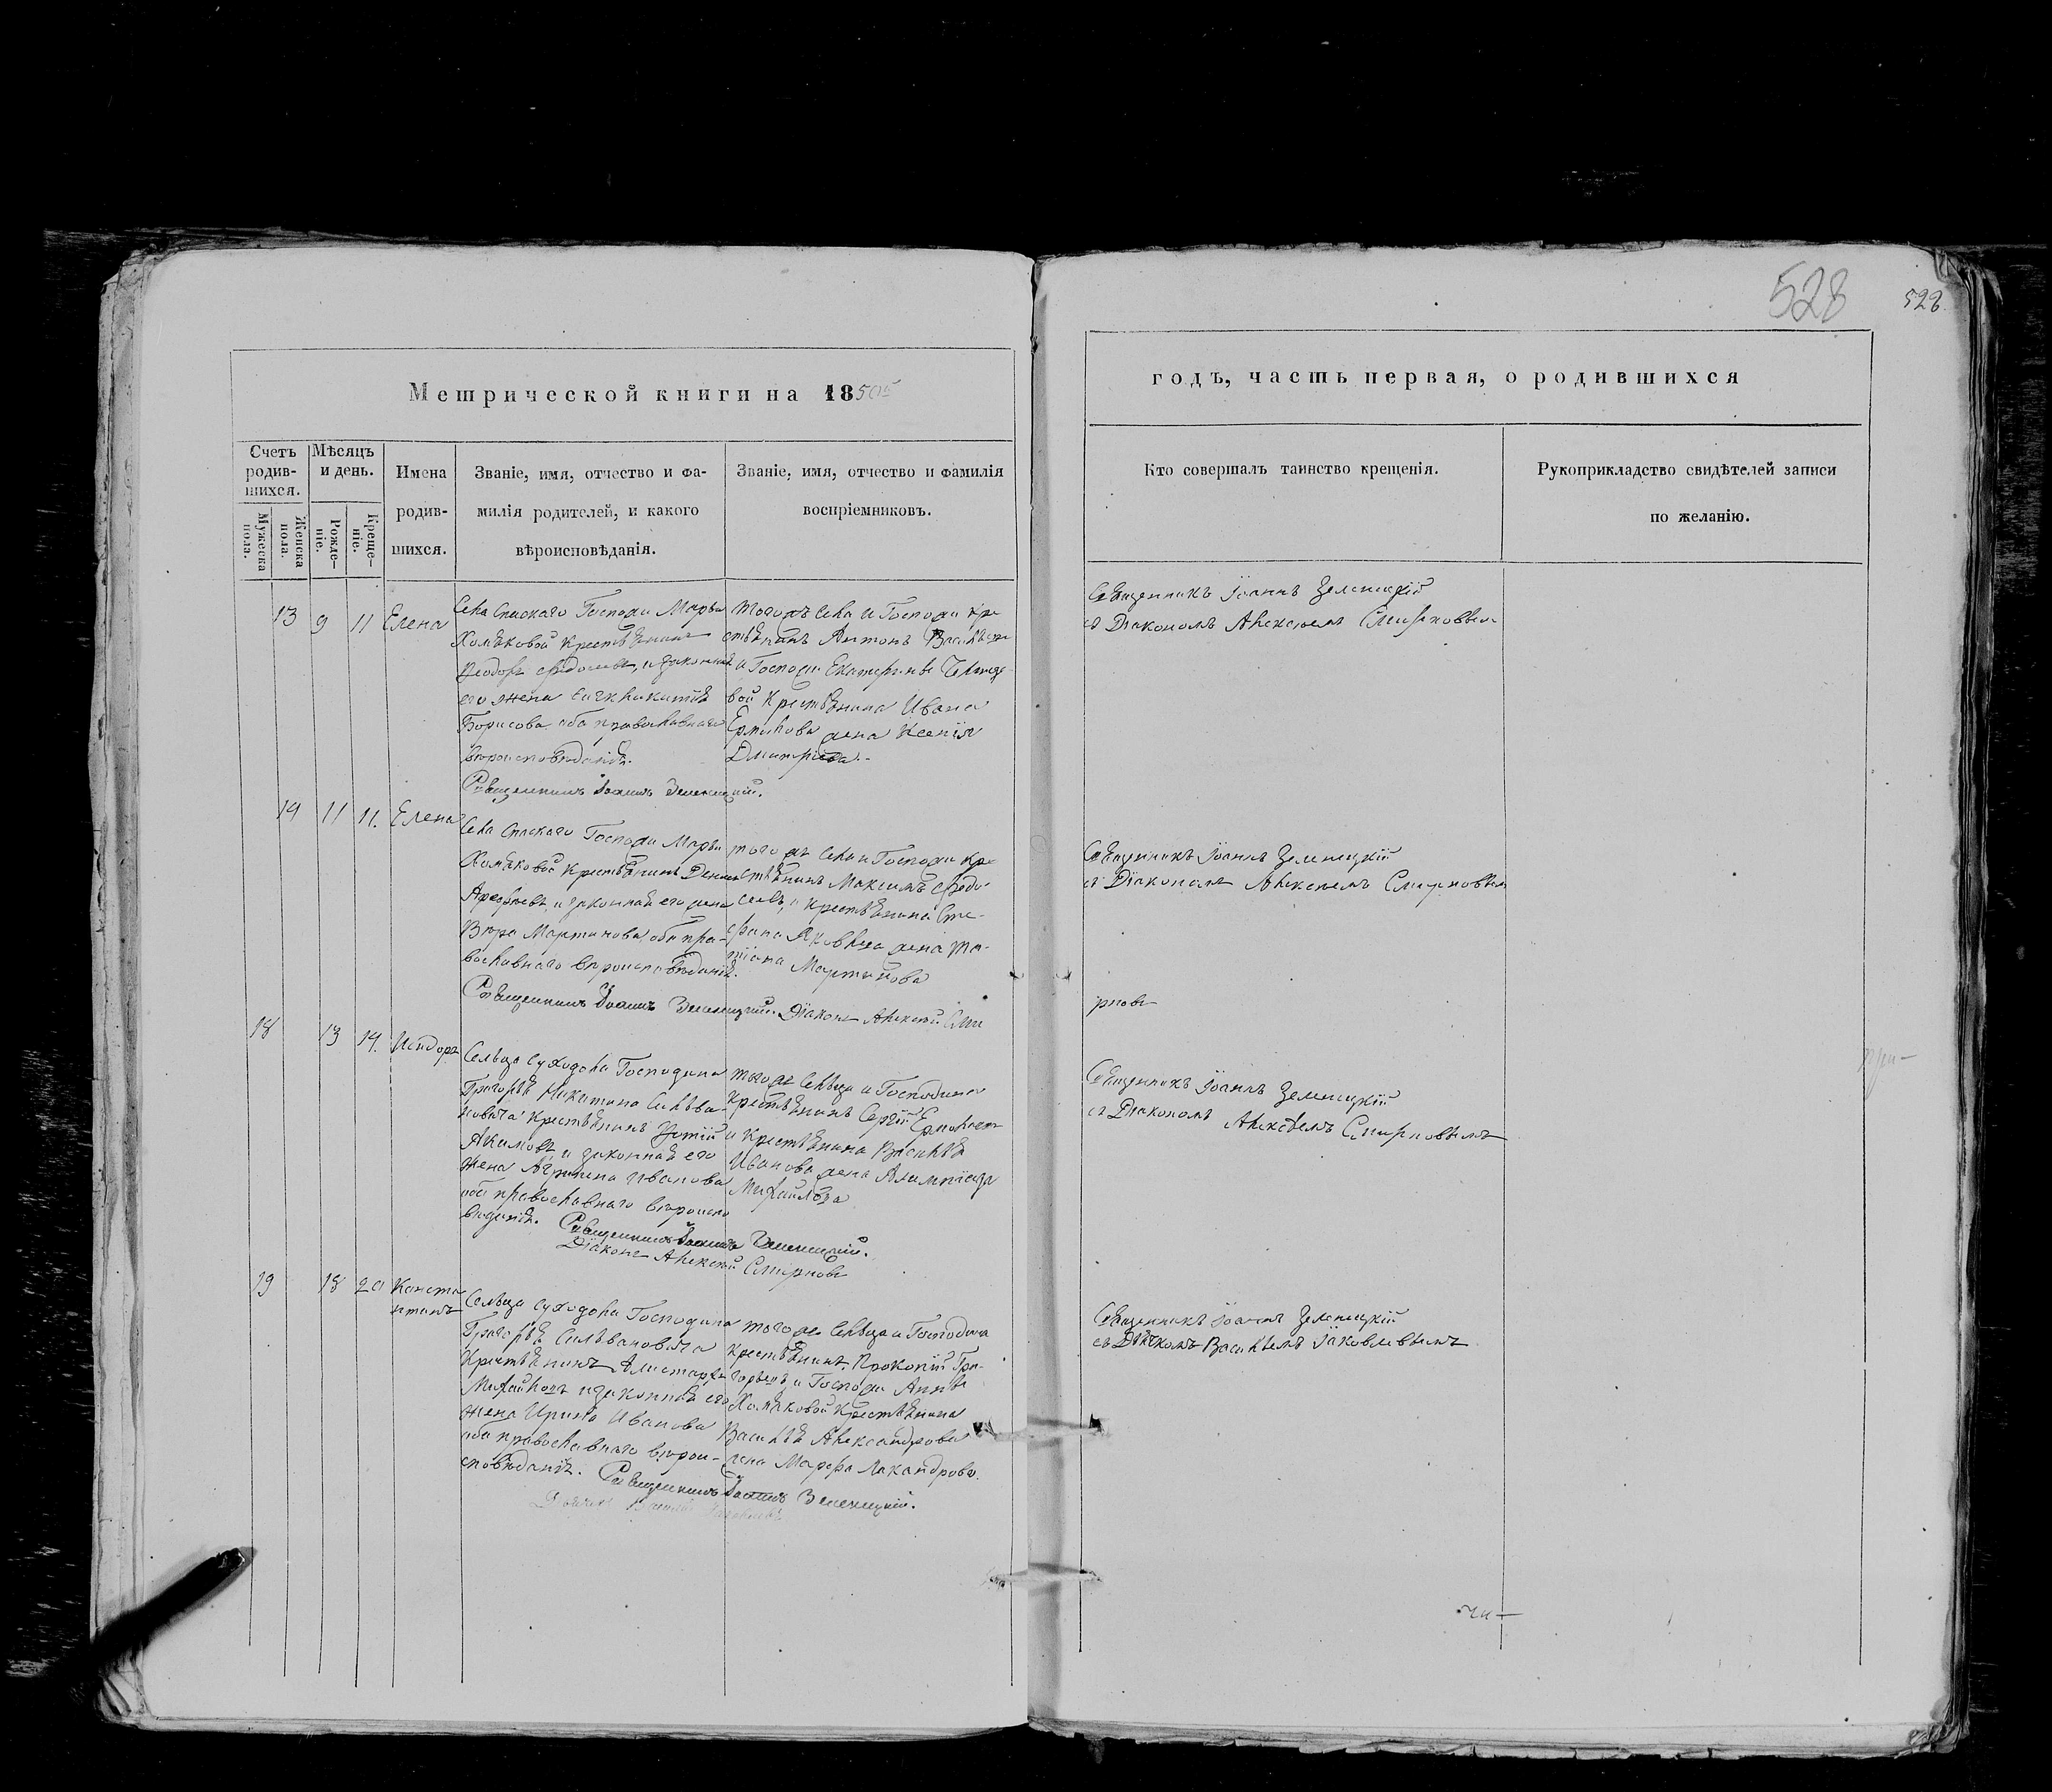 528
528
Метрической книги на 1850
годъ, часть первая, о родившихся
Счетъ родив-шихся.
Мѣсяцъ и день.
Имена родив-шихся.
Званіе, имя, отчество и фа-
милія родителей, и какого
вѣроисповѣданія.
Званіе, имя, отчество и фамилія
воспріемниковъ.
Кто совершалъ таинство крещенія.
Рукоприкладство свидѣтелей записи
по желанію.
Мужеска пола.
Женска пола.
Рожде-ніе.
Креще-ніе.
13 9 11 Елена
Села Спаскаго Госпожи Марьи
Хомяковой Крестьянинъ
Ѳеодоръ и законная
его жена
Борисова оба православнаго
вѣроисповѣданія.
Священникъ Іоаннъ Зеленецкій.
тогожъ села и Госпожи Кре-
стьянинъ Антонъ
и Госпожи Екатерины
вой Крестьянина Ивана
Ермилова жена Ксенія
Дмитріева.
Священникъ Іоаннъ Зеленецкій
съ Діакономъ Алексѣемъ Смирновымъ
14 11 11. Елена
Села Спаскаго Госпожи Марьи
Хомяковой Крестьянинъ
и законная его жена
Вѣра Мартинова оба пра-
вославнаго вѣроисповѣданія.
Священникъ Іоаннъ Зеленецкій. Діаконъ Алексѣй Сми
рновъ
тогожъ села и Госпожи Кре-
стьянинъ Максимъ Ѳедо-
и Крестьянина Сте-
фана Яковлева жена Та-
тіана Мартинова
Священникъ Іоаннъ Зеленецкій
съ Діакономъ Алексѣемъ Смирновымъ
18 13 14. Исидоръ
Сельца Суходола Господина
Григорья Никитина Сильва-
новича Крестьянинъ
Акимовъ и законная его
жена Агрипена Иванова
оба православнаго вѣроиспо
вѣданія. Священникъ Іоаннъ Зеленецкій.
Діаконъ Алексѣй Смирновъ
тогожъ сельца и Господина
Крестьянинъ Сергій
и Крестьянина Василья
Иванова жена
Михайлова
Священникъ Іоаннъ Зеленецкій
съ Діакономъ Алексѣемъ Смирновымъ
19 18 20 Конста
нтинъ
Сельца Суходола Господина
Григорья Сильвановича
Крестьянинъ Алистархъ
Михайловъ и законная его
жена Ирина Иванова
оба православнаго вѣрои-
сповѣданія. Священникъ Іоаннъ Зеленецкій.
тогожъ сельца и Господина
Крестьянинъ Прокопій Гри-
горьевъ, и Госпожи Анны
Хомяковой Крестьянина
Василья Александрова
жена Марфа
Священникъ Іоаннъ Зеленецкій
съ Дьячкомъ Васильемъ Іаковлевымъ